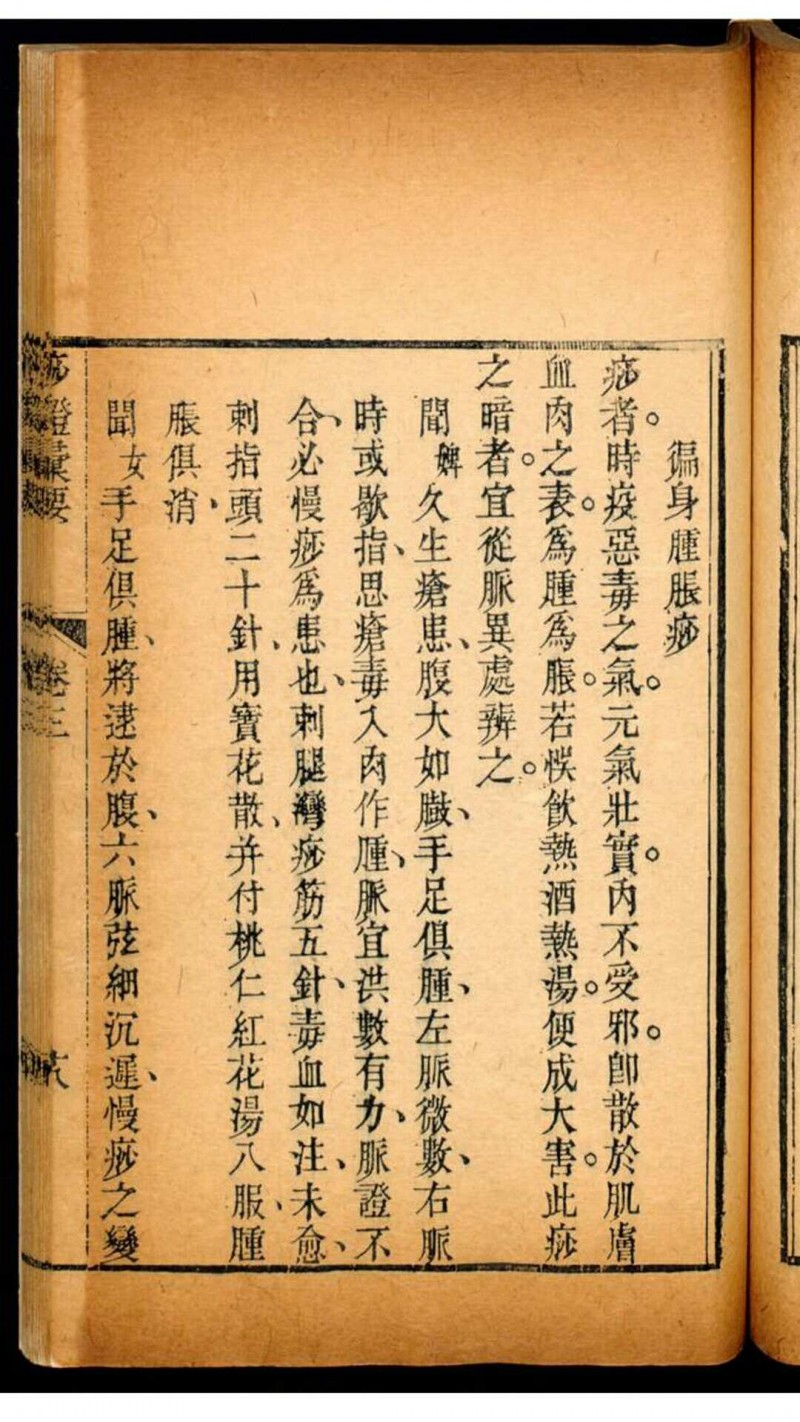 徧身腫脹痧
痧者。時疫惡毒之氣。元氣壯實。內不受邪。卽散於肌膚
血肉之表。為腫為脹。若悞飲熱酒熱湯。便成大害。此痧
之暗者。宜從脈異處辨之。
聞婢久生瘡患、腹大如臌、手足俱腫、左脈微數、右脈
時或歇指、思瘡毒入肉作腫、脈宜洪數有力、脈證不
合、必慢痧為患也、刺腿灣痧筋五針、毒血如注、未愈、
刺指頭二十針、用寶花散、并付桃仁紅花湯八服、腫
脹俱消、
聞女手足俱腫、將逮於腹、六脈弦細沉遲、慢痧之變
痧證彙要
卷三